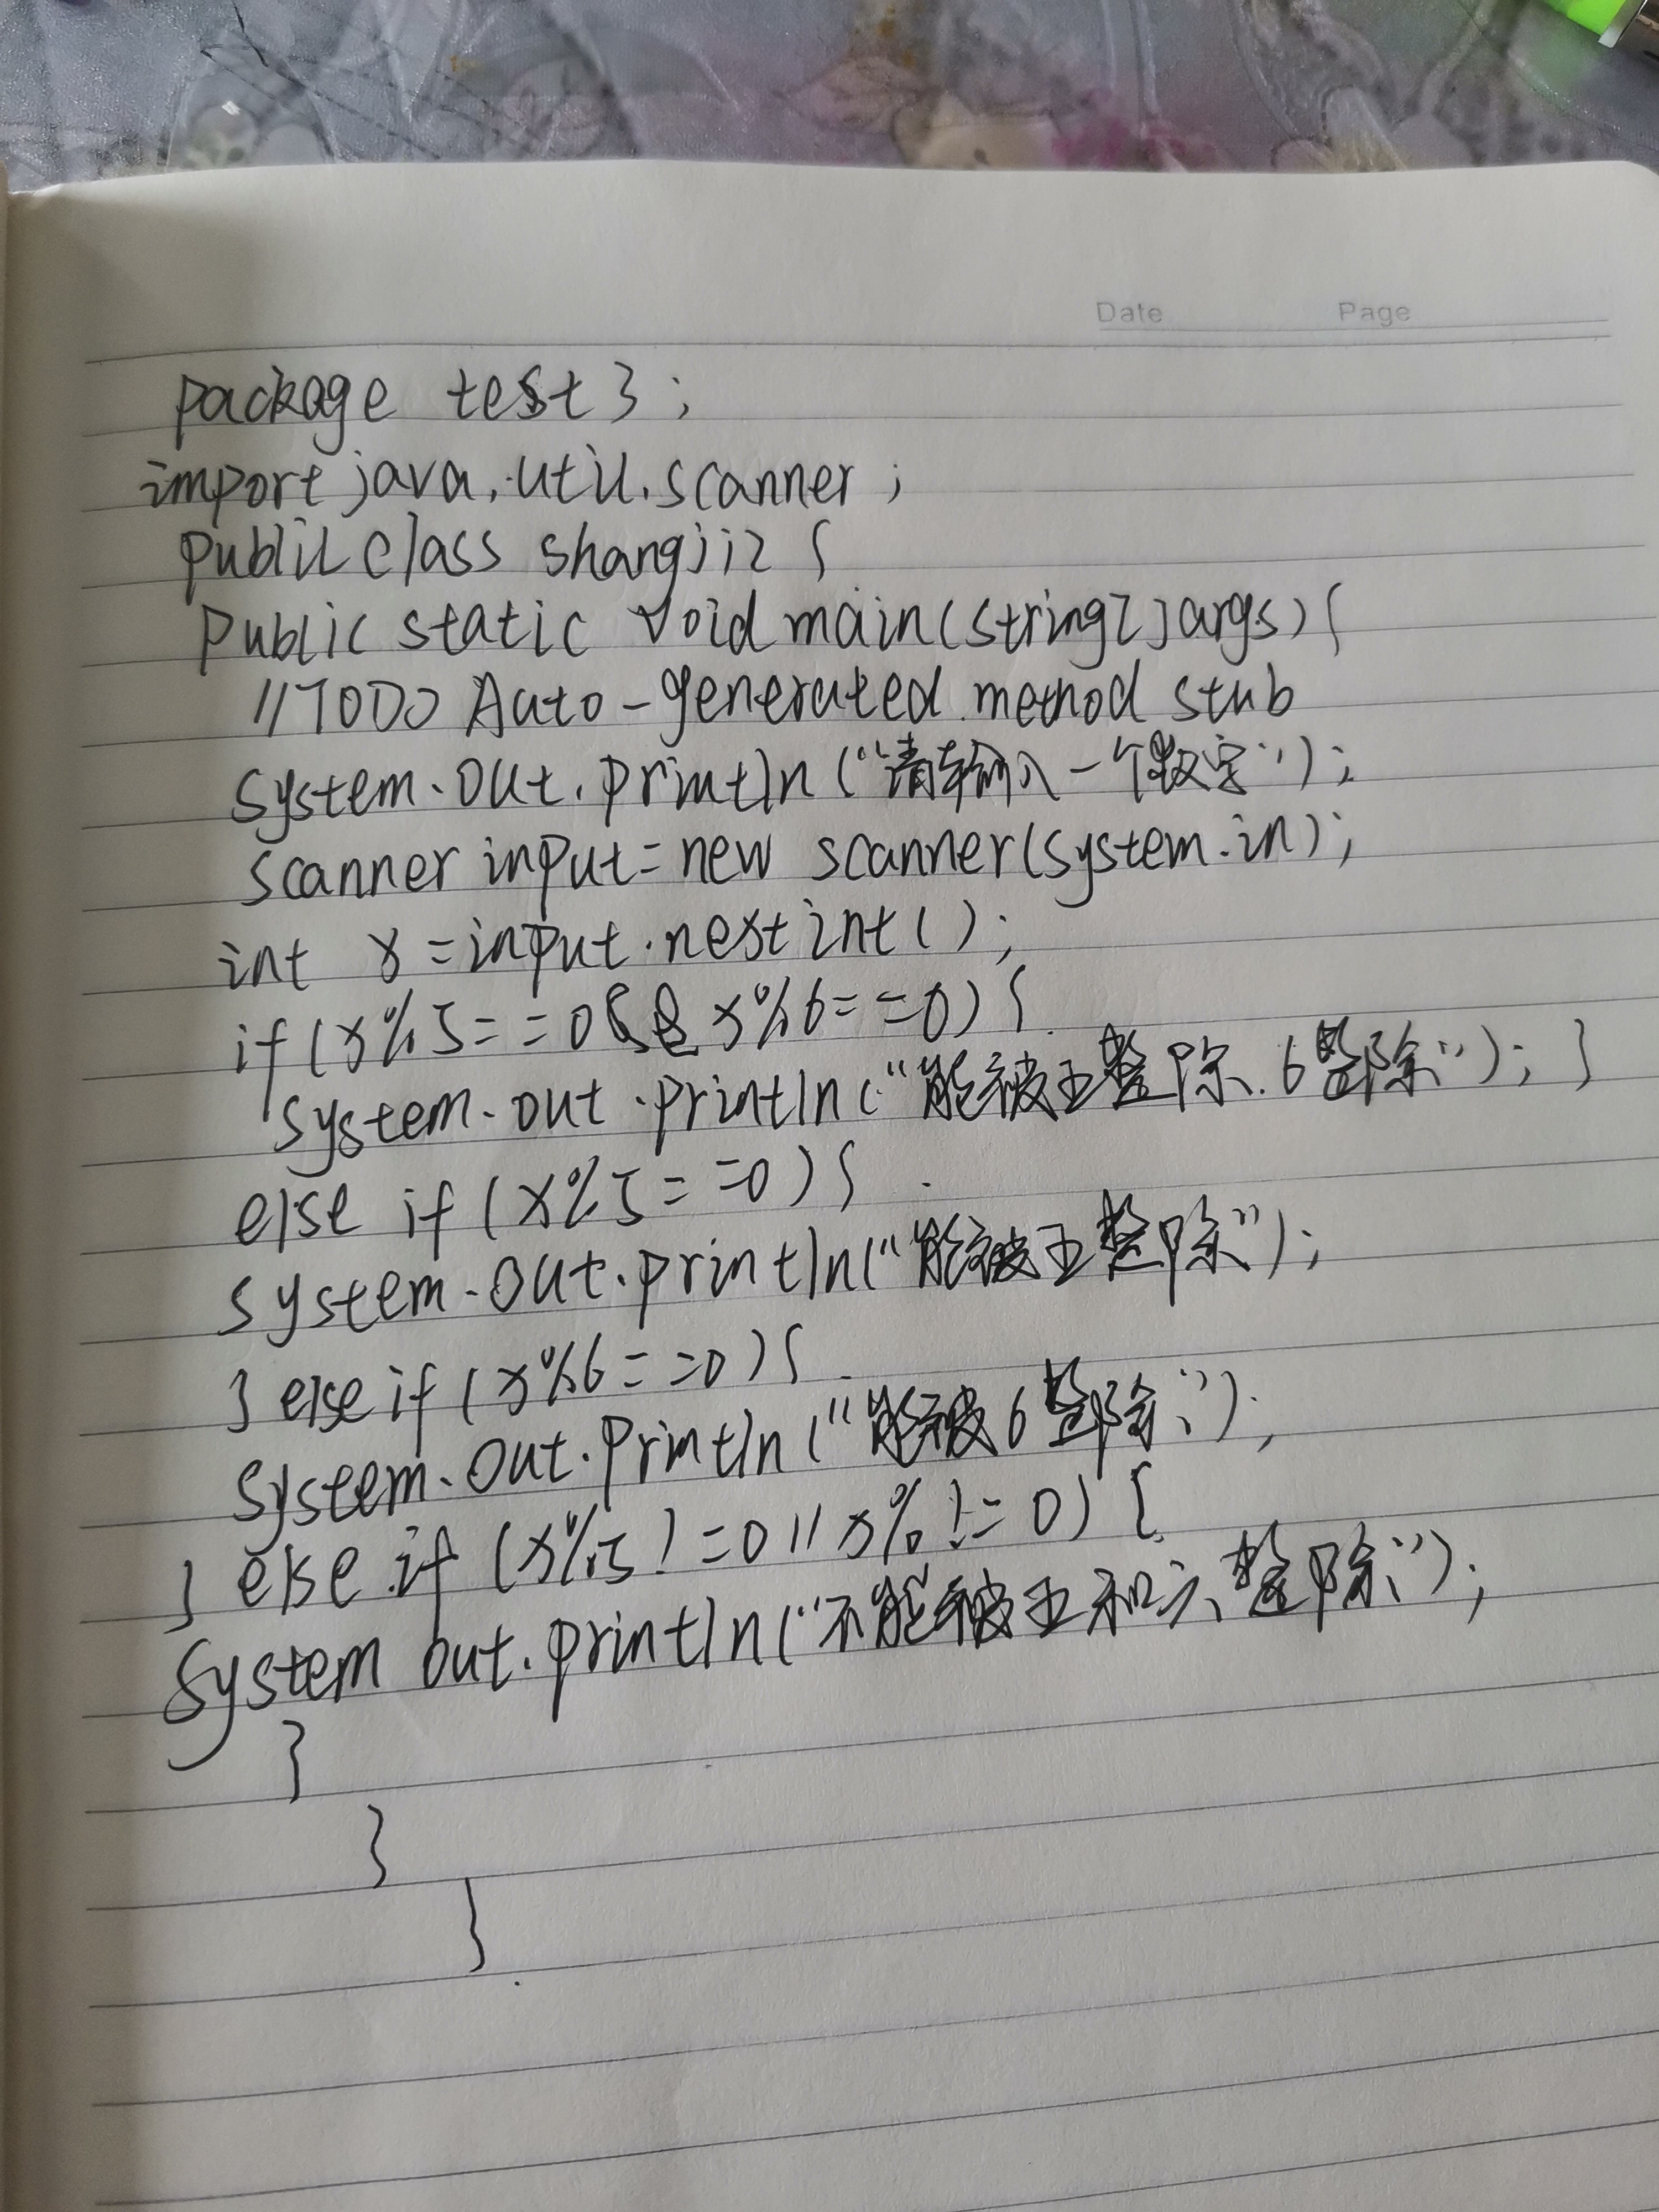 Date Page
package test3;
import java.util.scanner;
public class shangji2 {
public static void main(string[]args){
//TODO Auto-generated method stub
system.out.println("请输入一个数字");
scanner input=new scanner(system.in);
int x=input.nextint();
if(x%5==0&&x%6==0){
system.out.println("能被五整除.6整除");}
else if(x%5==0){
system.out.println("能被五整除");
}else if(x%6==0){
system.out.println("能被6整除");
}else if(x%5!=0||x%!=0){
System out.println("不能被五和六整除");
}
}
}